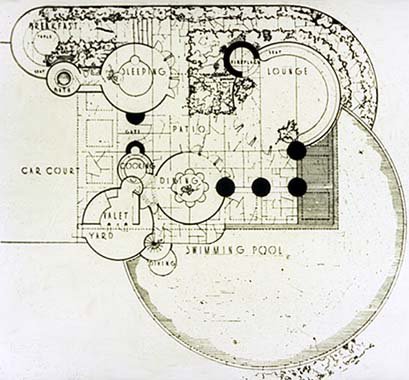 BREAKFAST
TABLE
SEAT
BATH
SLEEPING
FIREPLACE
SEAT
LOUNGE
GATE
PATIO
CAR COURT
COOKING
DINING
VALET
YARD
SWIMMING POOL
DIVING